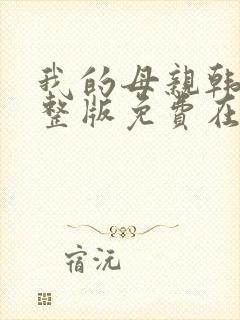 我的母親韩
整版免費在
宿沅